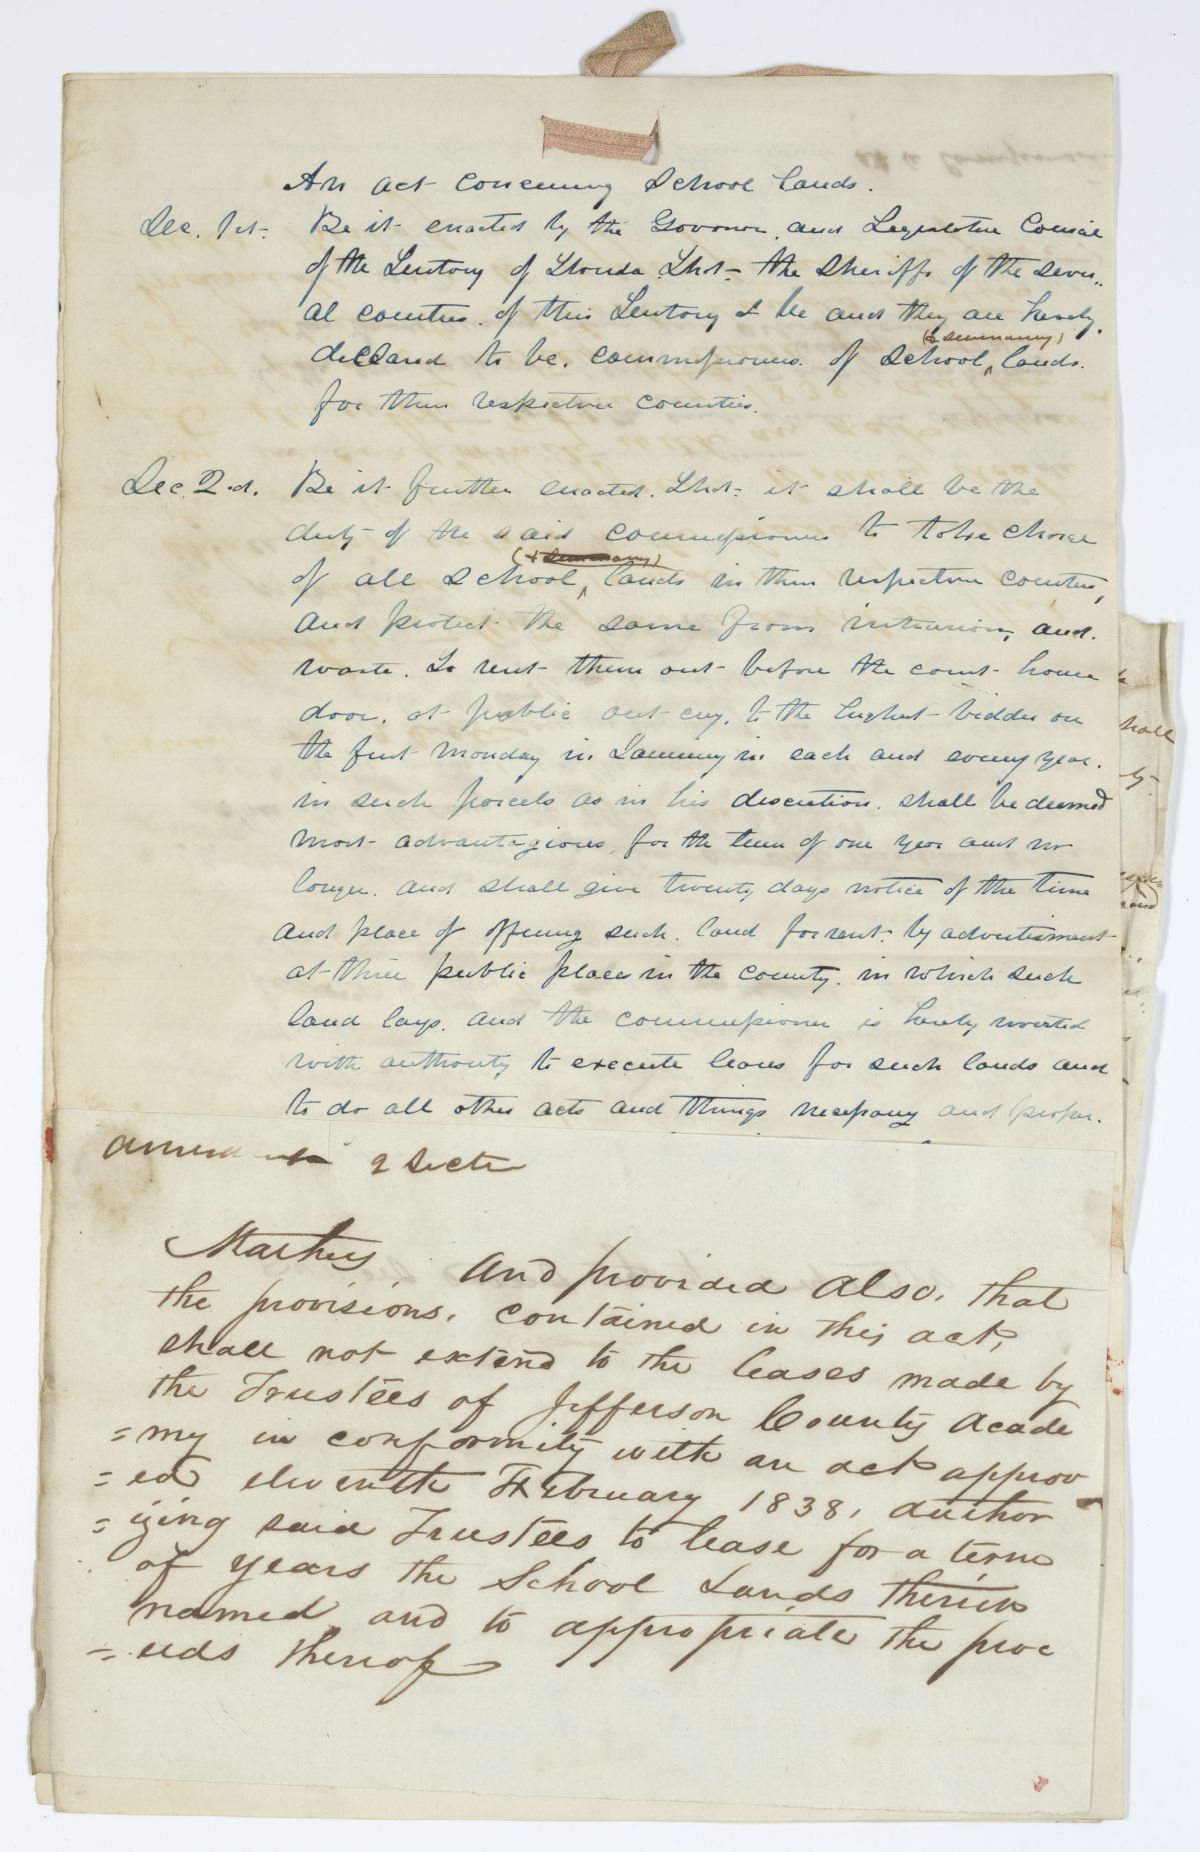 An act concerning School lands.
Sec. 1st. Be it enacted by the Govonor. and Legislative Council
of the Territory of Florida. That the Sheriffs of the sever..
al counties. of this Territory & be and they are hereby.
declared to be. commissioners. of School (& seminary) lands.
for their respective counties.
Sec. 2.d. Be it further enacted. That it shall be the
duty of the said commissioners to take charge
of all School (& seminary) lands in their respective counties,
and protect the same from intrusion, and.
waste. To rent them out before the court house
door. at public out cry. to the highest bidder on
the first monday in January in each and every year.
in such parcels as in his discretion. shall be deemed
most advantagious, for the term of one year and no
longer. and shall give twenty days notice of the time
and place of offering such. land for rent. by advertisment
at three public places in the county. in which such
land lays. and the commissioner is hereby invested
with authority to execute leases for such lands and
to do all other acts and things necessary and proper.
amendment 2 Sect
Mathers And provided also, that
the provisions, contained in this act,
shall not extend to the leases made by
the Trustees of Jefferson County Acade
=my in conformity with an act approv
=ed eleventh February 1838, author
=izing said Trustees to lease for a term
of years the School Lands therein
named and to appropriate the proc
=eeds thereof
hall